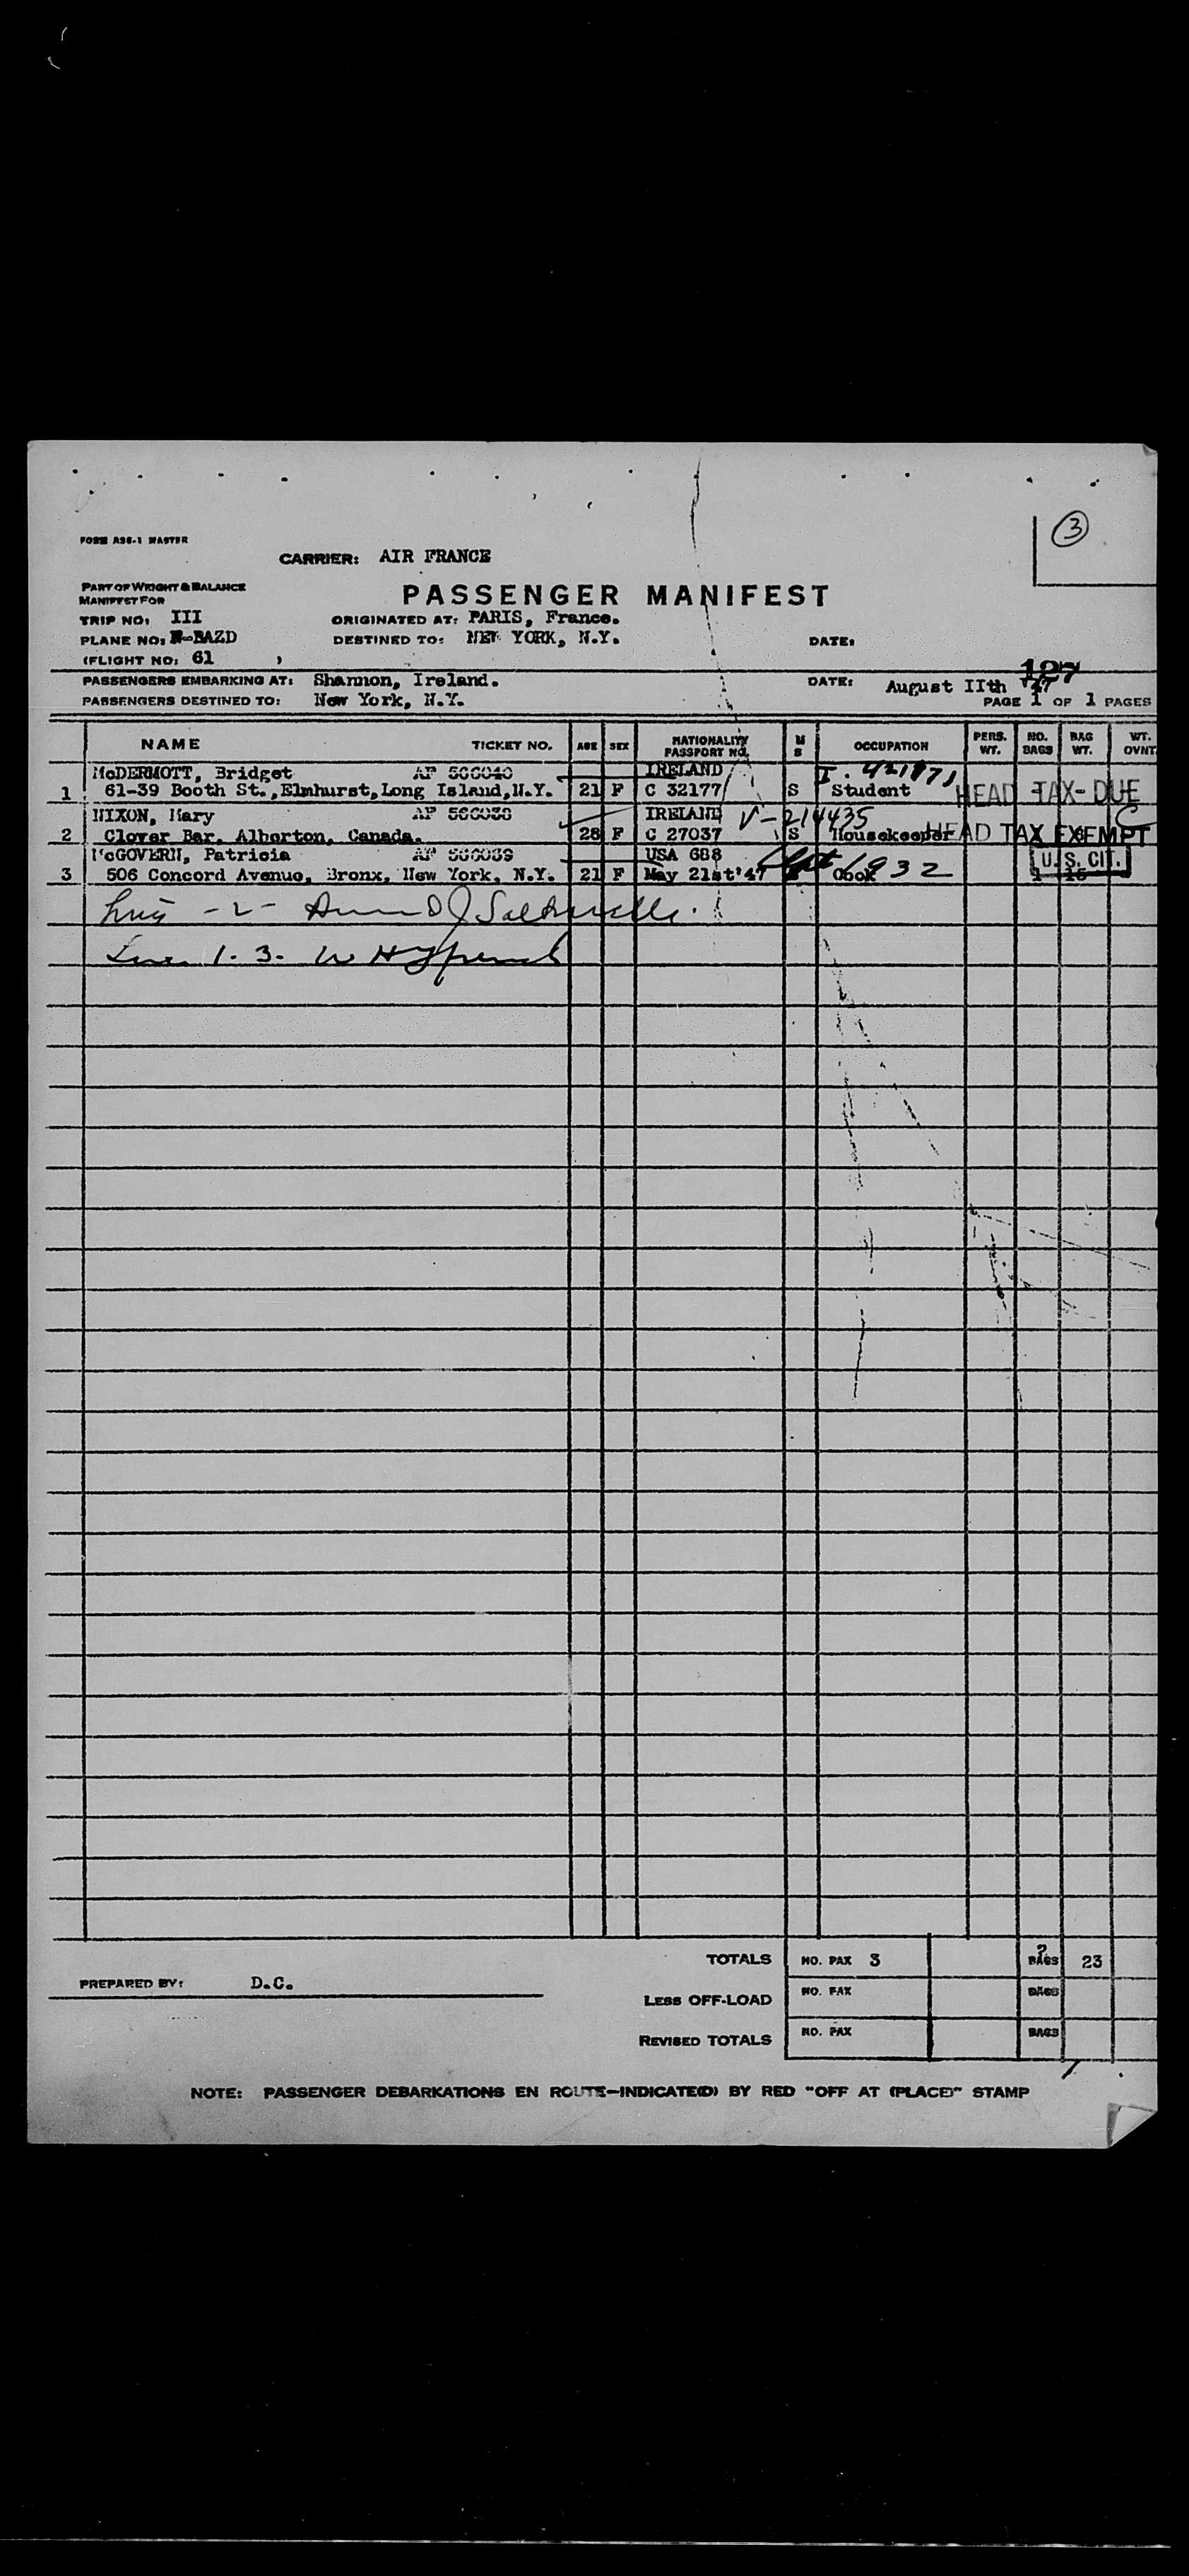 3
FORM A36-1 MASTER
CARRIER: AIR FRANCE
PART OF WEIGHT & BALANCE
MANIFEST FOR
PASSENGER MANIFEST
TRIP NO: III
ORIGINATED AT: PARIS, France.
PLANE NO: F-BAZD
DESTINED TO: NEW YORK, N.Y.
DATE:
(FLIGHT NO: 61 )
PASSENGERS EMBARKING AT: Shannon, Ireland.
DATE: August IIth
PASSENGERS DESTINED TO: New York, N.Y.
PAGE 1 OF 1 PAGES
NAME TICKET NO. AGE SEX NATIONALITY PASSPORT NO. M S OCCUPATION PERS. WT. NO. BAGS BAG WT. WT. OVNT
McDERMOTT, Bridget AF 566040 IRELAND
1 61-39 Booth St.,Elmhurst,Long Island,N.Y. 21 F C 32177 S Student HEAD TAX-DUE
NIXON, Mary AF 566038 IRELAND V-214435
2 Clover Bar, Alberton, Canada. 28 F C 27037 S Housekeeper HEAD TAX EXEMPT
McGOVERN, Patricia AF 566039 USA 688 U.S. CIT.
3 506 Concord Avenue, Bronx, New York, N.Y. 21 F May 21st'47 Cook 1932
TOTALS NO. PAX 3 BAGS 23
PREPARED BY: D.C.
LESS OFF-LOAD NO. PAX BAGS
REVISED TOTALS NO. PAX BAGS
NOTE: PASSENGER DEBARKATIONS EN ROUTE—INDICATE(D) BY RED "OFF AT (PLACE)" STAMP